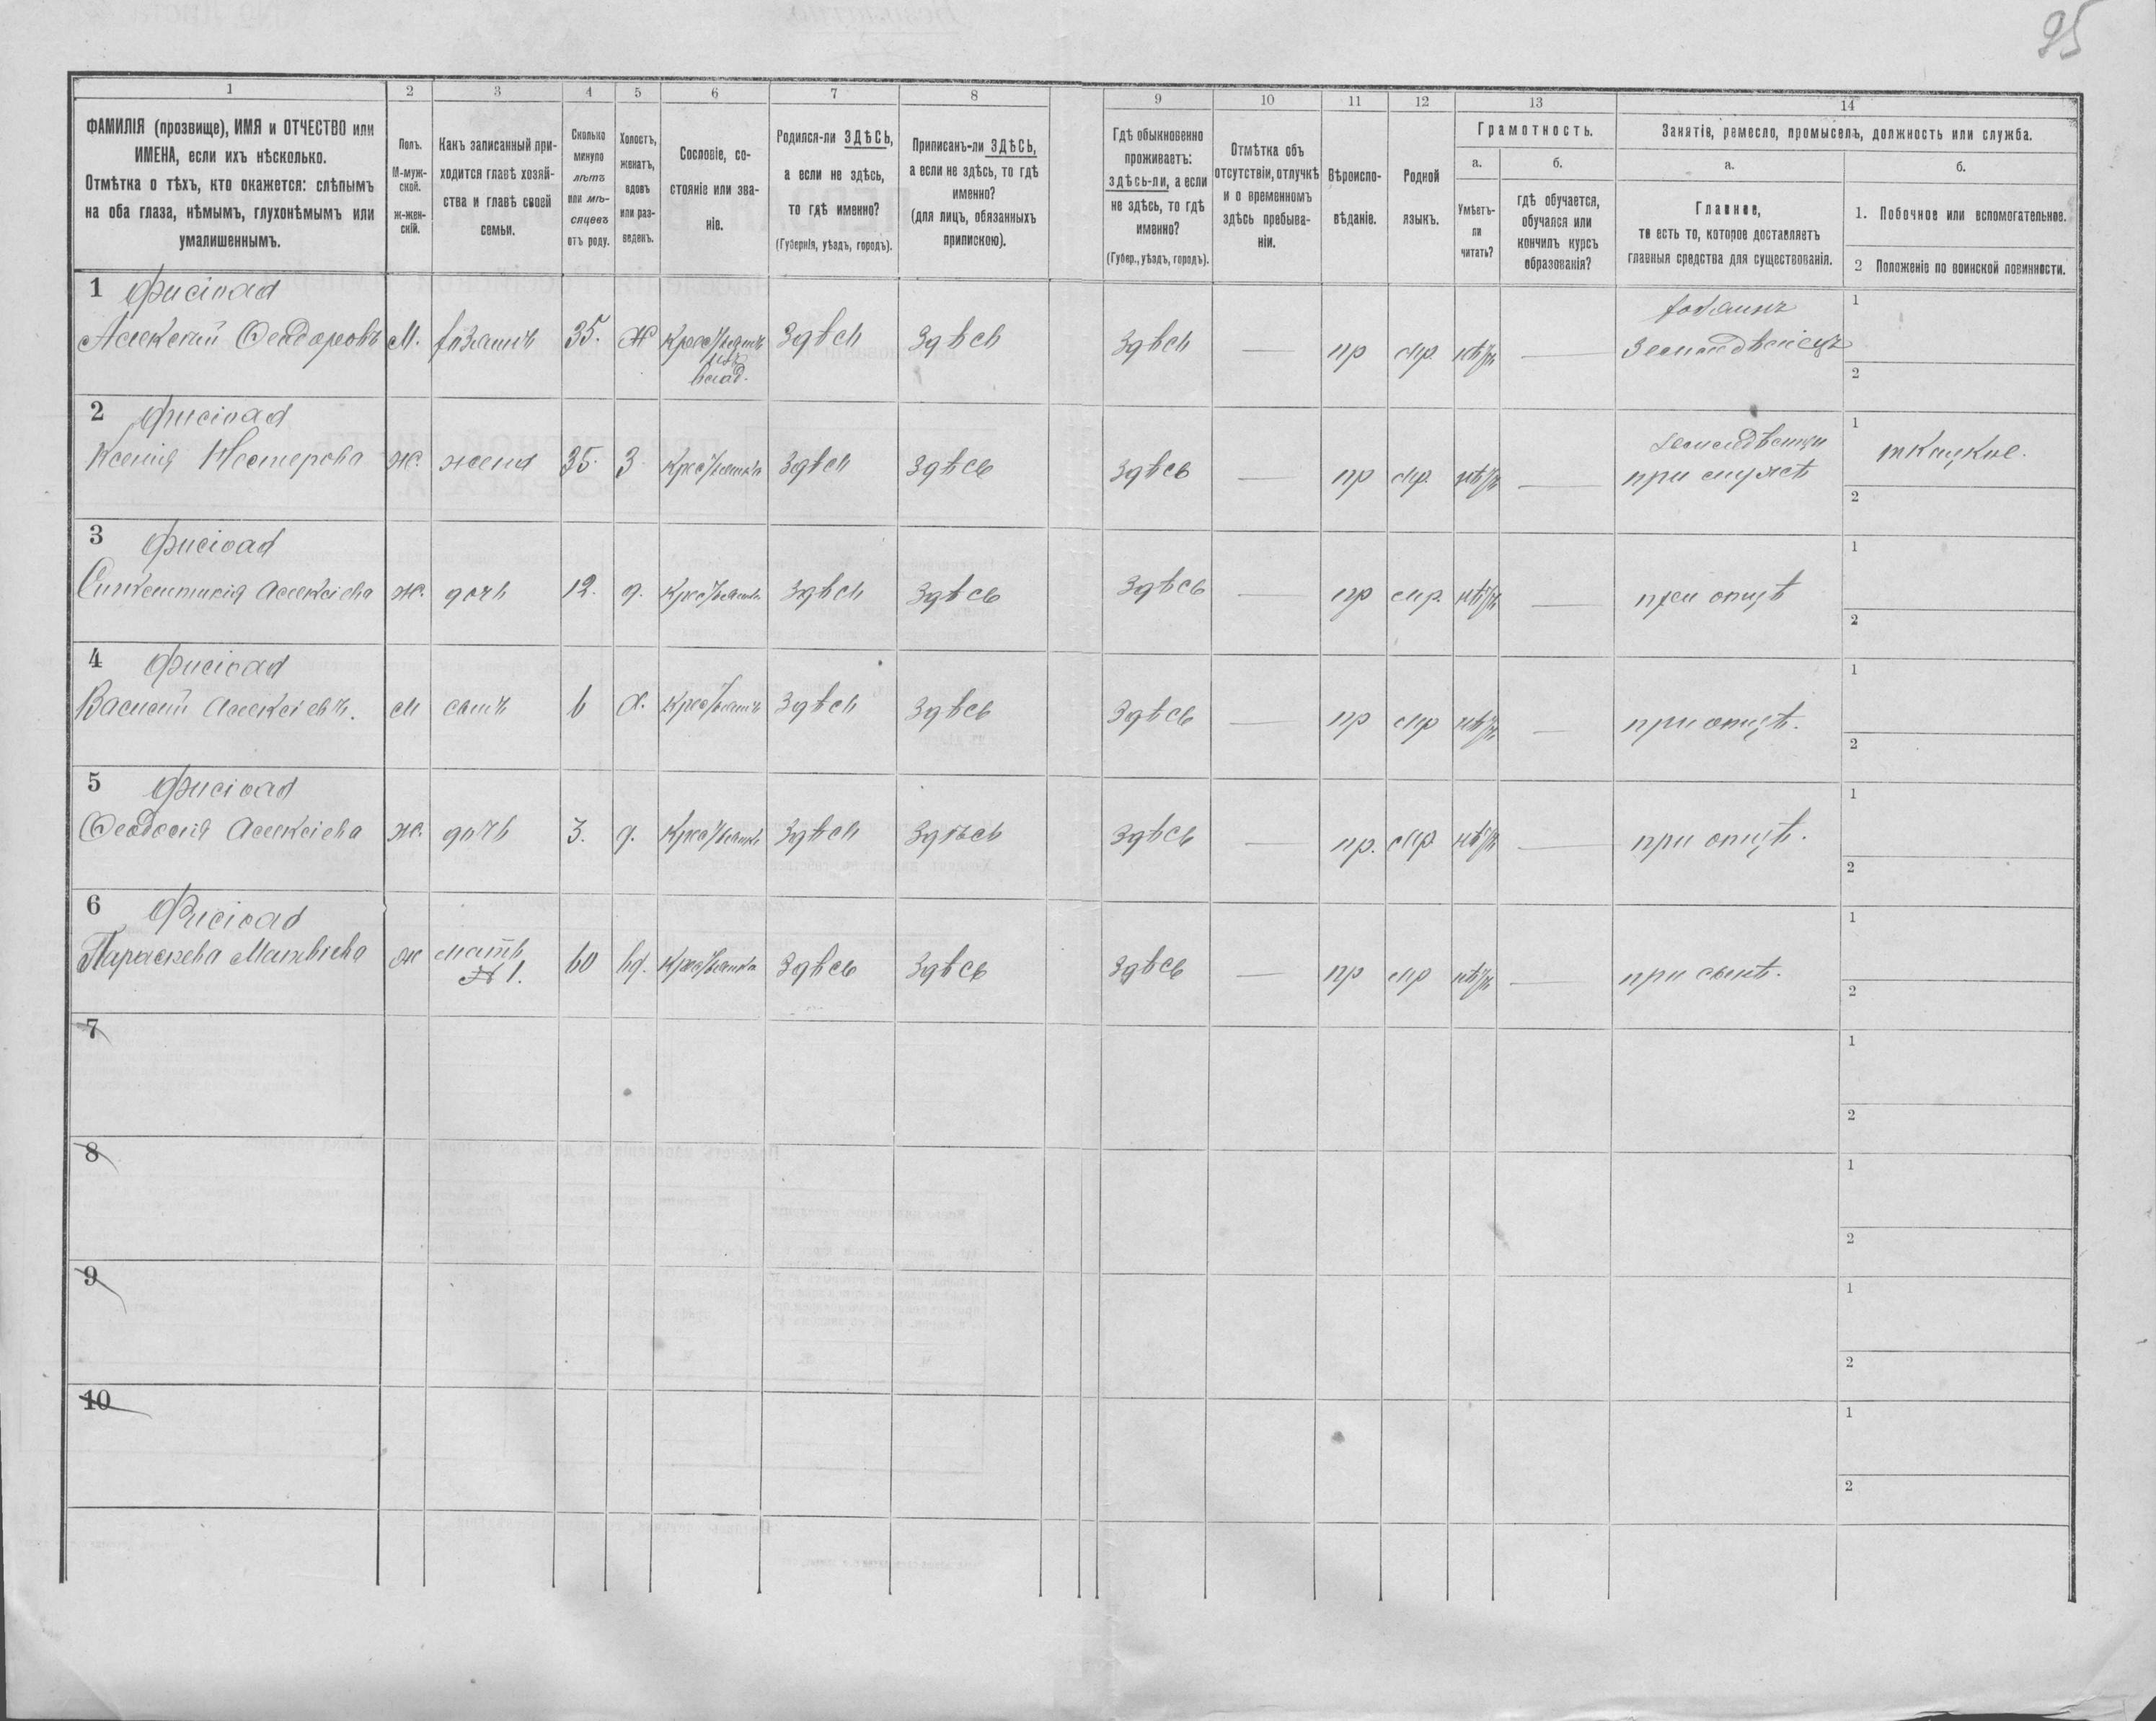 95
1 2 3 4 5 6 7 8 9 10 11 12 13 14
ФАМИЛІЯ (прозвище), ИМЯ и ОТЧЕСТВО или
ИМЕНА, если ихъ нѣсколько.
Отмѣтка о тѣхъ, кто окажется: слѣпымъ
на оба глаза, нѣмымъ, глухонѣмымъ или
умалишеннымъ.
Полъ.
М-муж-
ской.
ж-жен-
скій.
Какъ записанный при-
ходится главѣ хозяй-
ства и главѣ своей
семьи.
Сколько
минуло
лѣтъ
или мѣ-
сяцевъ
отъ роду.
Холостъ,
женатъ,
вдовъ
или раз-
веденъ.
Сословіе, со-
стояніе или зва-
ніе.
Родился-ли ЗДѢСЬ,
а если не здѣсь,
то гдѣ именно?
(Губернія, уѣздъ, городъ).
Приписанъ-ли ЗДѢСЬ,
а если не здѣсь, то гдѣ
именно?
(для лицъ, обязанныхъ
припискою).
Гдѣ обыкновенно
проживаетъ:
здѣсь-ли, а если
не здѣсь, то гдѣ
именно?
(Губер., уѣздъ, городъ).
Отмѣтка объ
отсутствіи, отлучкѣ
и о временномъ
здѣсь пребыва-
ніи.
Вѣроиспо-
вѣданіе.
Родной
языкъ.
Грамотность.
а.
Умѣетъ-
ли
читать?
б.
гдѣ обучается,
обучался или
кончилъ курсъ
образованія?
Занятіе, ремесло, промыселъ, должность или служба.
а.
Главное,
то есть то, которое доставляетъ
главныя средства для существованія.
б.
1. Побочное или вспомогательное.
2 Положеніе по воинской повинности.
1
Алексѣй Ѳеодоровъ М. хозяинъ 35. Ж Здѣсь Здѣсь Здѣсь — пр мр нѣтъ — хозяинъ
Земледѣлецъ
1
2
2
Ксенія Нестерова ж. жена 35. З Крестьянка Здѣсь Здѣсь Здѣсь — пр мр. нѣтъ —
при мужѣ
1 ткацкое.
2
3
Синклитикія Алексіева ж. дочь 12. д. Крестьянка Здѣсь Здѣсь Здѣсь — пр мр. нѣтъ — при отцѣ
1
2
4
Василій Алексіевъ. м сынъ 6 х. Крестьянъ Здѣсь Здѣсь Здѣсь — пр мр нѣтъ — при отцѣ.
1
2
5
Ѳеодосія Алексіева ж. дочь 3. д. Крестьянка Здѣсь Здѣсь Здѣсь — пр. мр. нѣтъ — при отцѣ.
1
2
6
Параскева Матвіева ж мать
№ 1. 60 вд. Крестьянка Здѣсь Здѣсь Здѣсь — пр мр нѣтъ — при сынѣ.
1
2
7
1
2
8
1
2
9
1
2
10
1
2